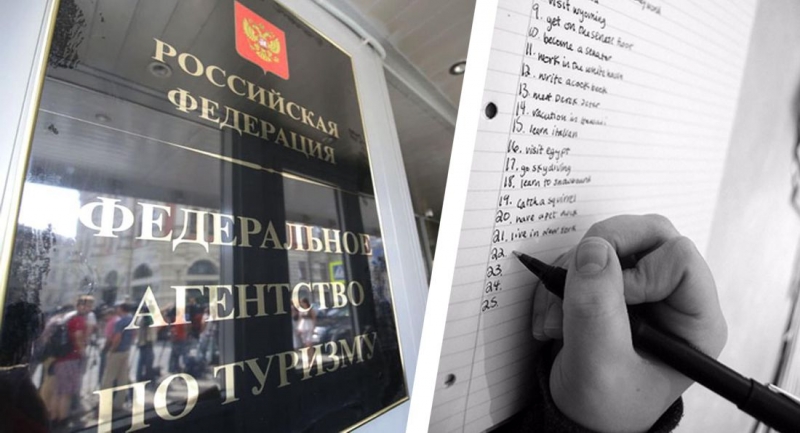 РОССИЙСКАЯ
ФЕДЕРАЦИЯ
ФЕДЕРАЛЬНОЕ
АГЕНТСТВО
ПО ТУРИЗМУ
visit wyoming
9. get on the senate floor
10. become a senator
11. work in the white house
12. write a cook book
13. meet Derek Jeter
14. vacation in
15. learn italian
16. visit egypt
17. go skydiving
18. learn to snowboard
19. catch a squirrel
20. have a pet
21. live in new york
22
23.
24.
25.